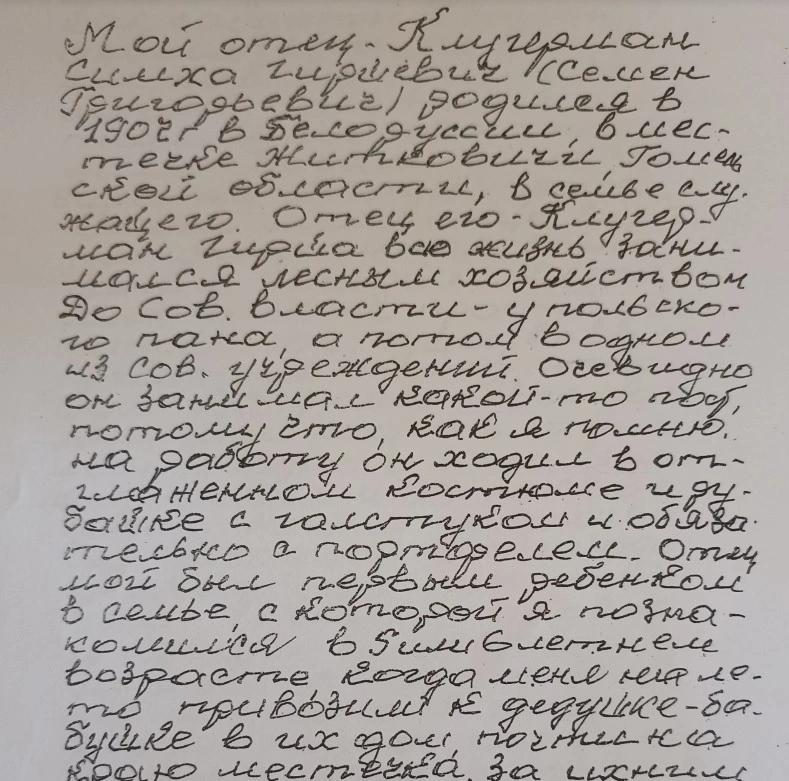 Мой отец - Клугерман
Симха Гиршевич (Семен
Григорьевич) родился в
1907г в Белоруссии, в мес-
течке Житковичи, Гомель
ской области, в семье слу-
жащего. Отец его - Клугер-
ман Гирша всю жизнь зани-
мался лесным хозяйством
До Сов. власти - у польско-
го пана, а потом в одном
из сов. учреждений. Очевидно
он занимал какой-то пост,
потому что, как я помню.
на работу он ходил в от-
глаженном костюме и ру-
башке с галстуком и обяза-
тельно с портфелем. Отец
мой был первым ребенком
в семье, с которой я позна-
комился в 5 или 6 летнем
возрасте когда меня на ле-
то привозили к дедушке-ба-
бушке в их дом, почти на
краю местечка, за ихним